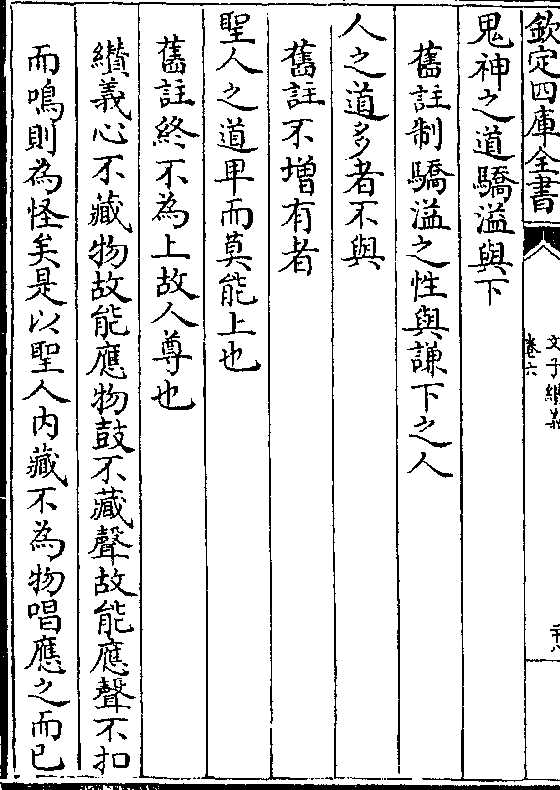 欽定四庫全書
文子纘義
卷六
鬼神之道驕溢與下
舊註制驕溢之性與謙下之人
人之道多者不與
舊註不增有者
聖人之道卑而莫能上也
舊註終不為上故人尊也
纘義心不藏物故能應物鼓不藏聲故能應聲不扣
而鳴則為怪矣是以聖人內藏不為物唱應之而已